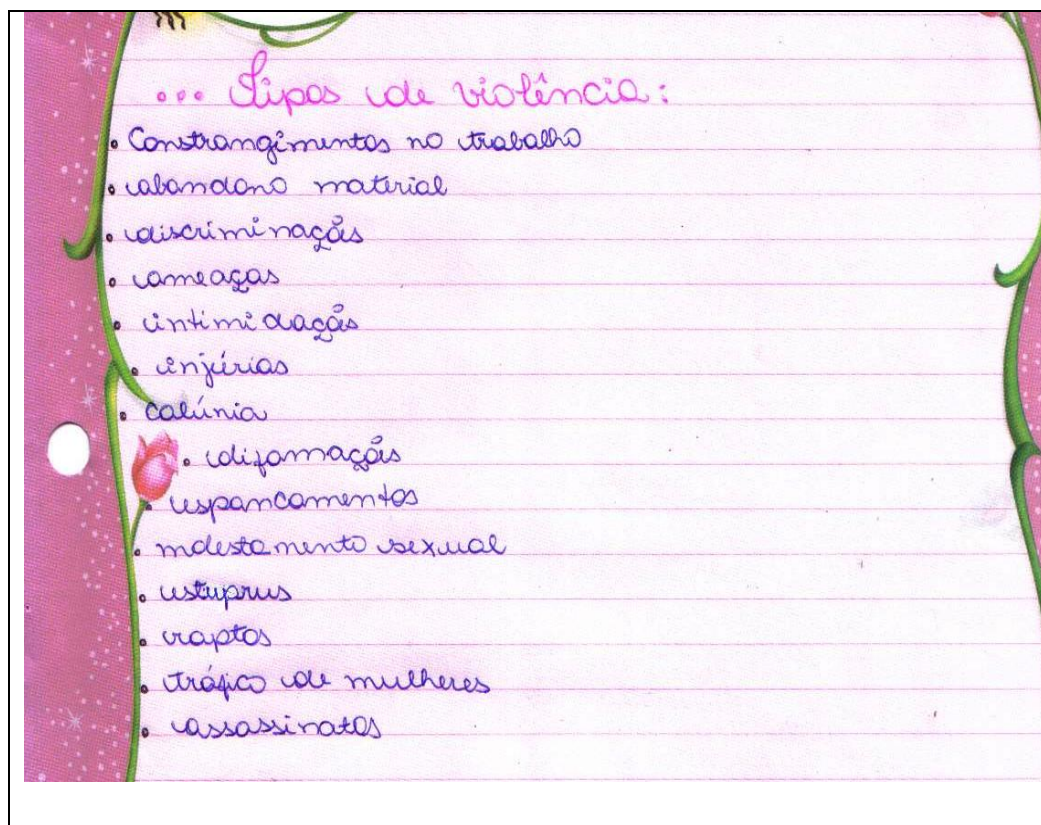 ... Tipos de violência:
• Constrangimentos no trabalho
• abandono material
• discriminações
• ameaças
• intimidações
• injúrias
• calúnia
• difamações
• espancamentos
• molestamento sexual
• estuprus
• raptos
• tráfico de mulheres
• assassinatos